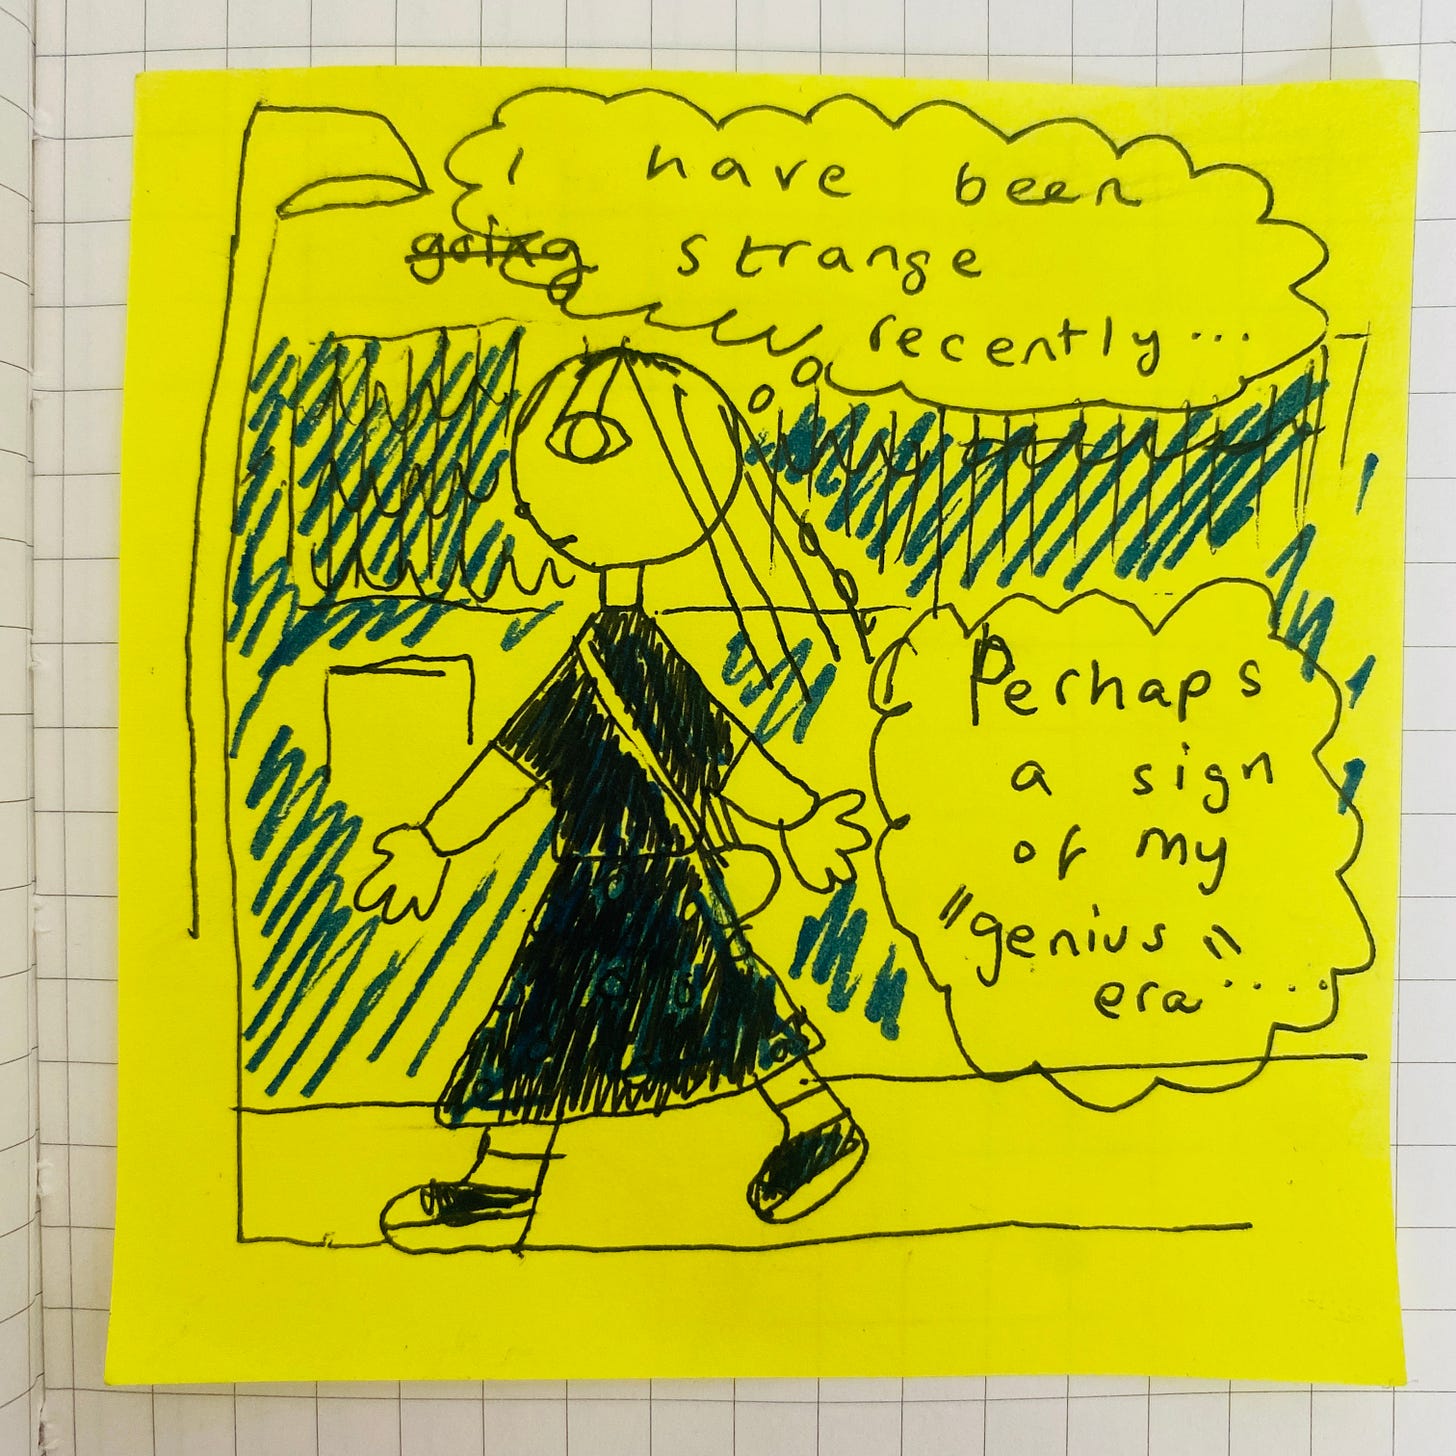 i have been
going strange
recently...
Perhaps
a sign
of my
"genius"
era.....